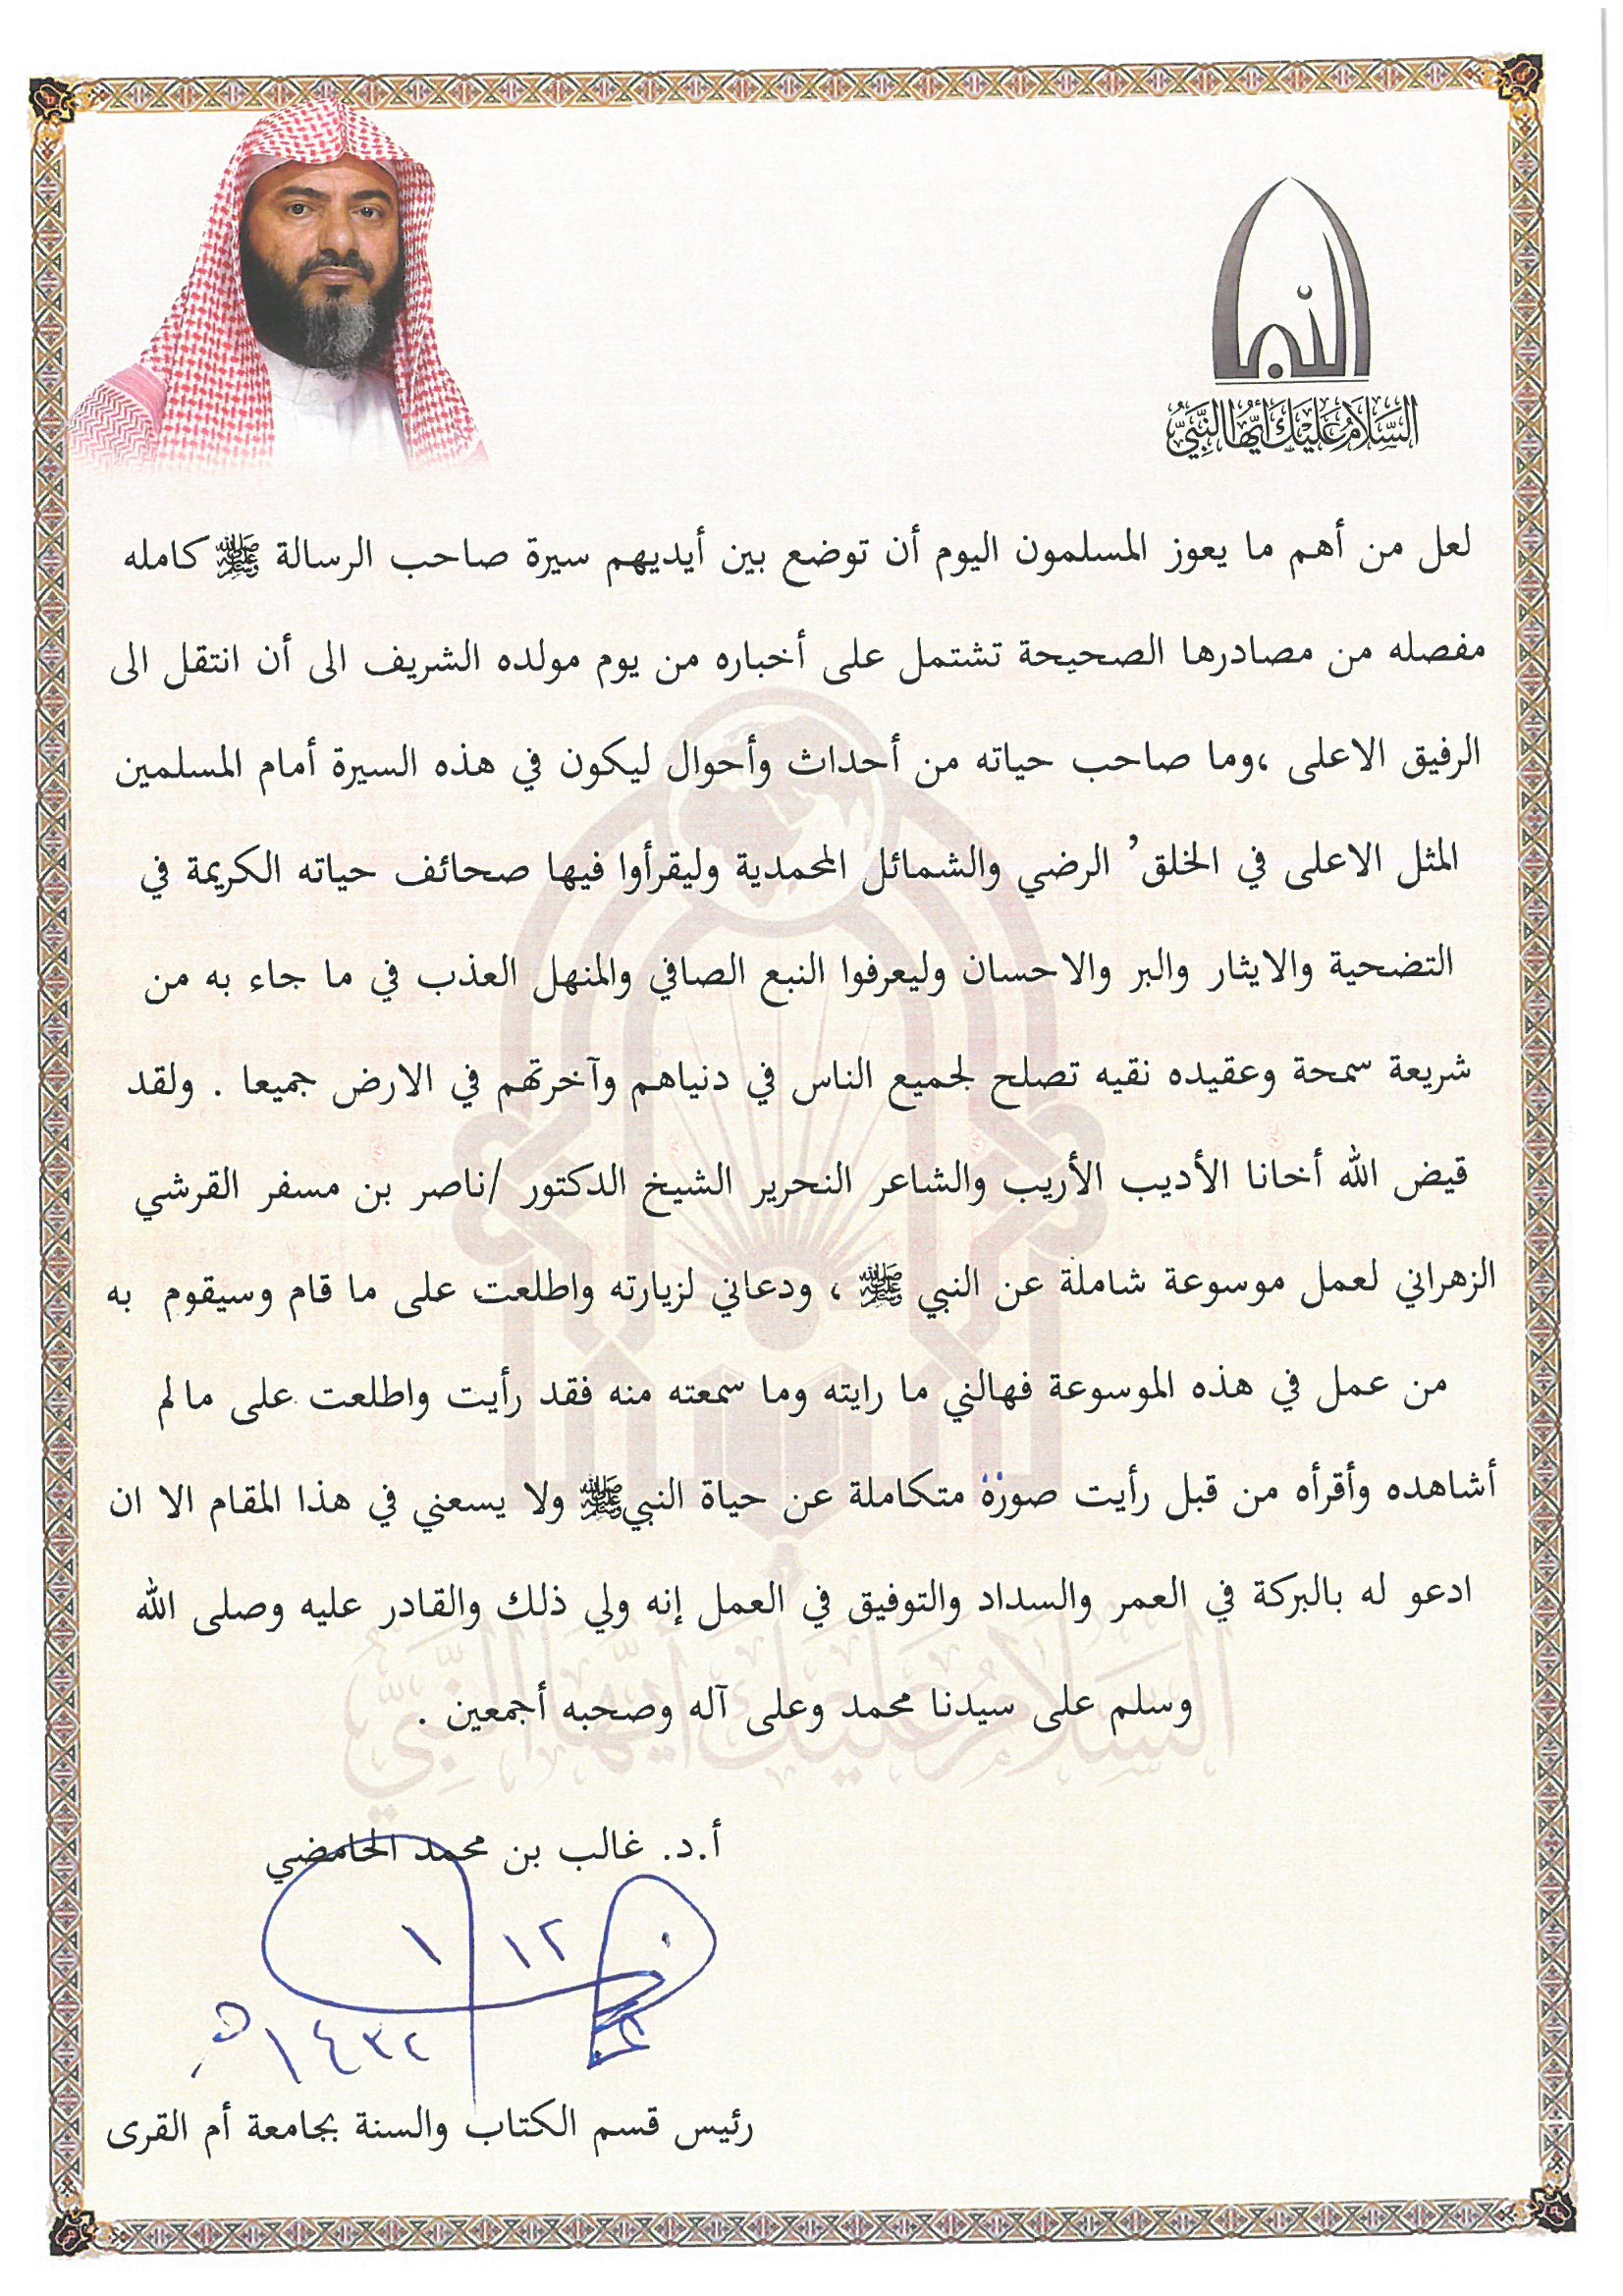 النبي
السلام عليك أيها النبي
لعل من أهم ما يعوز المسلمون اليوم أن توضع بين أيديهم سيرة صاحب الرسالة ﷺ كامله
مفصله من مصادرها الصحيحة تشتمل على أخباره من يوم مولده الشريف الى أن انتقل الى
الرفيق الاعلى ،وما صاحب حياته من أحداث وأحوال ليكون في هذه السيرة أمام المسلمين
المثل الاعلى في الخلق’ الرضي والشمائل المحمدية وليقرأوا فيها صحائف حياته الكريمة في
التضحية والايثار والبر والاحسان وليعرفوا النبع الصافي والمنهل العذب في ما جاء به من
شريعة سمحة وعقيده نقيه تصلح لجميع الناس في دنياهم وآخرتهم في الارض جميعا . ولقد
قيض الله أخانا الأديب الأريب والشاعر النحرير الشيخ الدكتور /ناصر بن مسفر القرشي
الزهراني لعمل موسوعة شاملة عن النبي ﷺ ، ودعاني لزيارته واطلعت على ما قام وسيقوم به
من عمل في هذه الموسوعة فهالني ما رايته وما سمعته منه فقد رأيت واطلعت على مالم
أشاهده وأقرأه من قبل رأيت صورة متكاملة عن حياة النبيﷺ ولا يسعني في هذا المقام الا ان
ادعو له بالبركة في العمر والسداد والتوفيق في العمل إنه ولي ذلك والقادر عليه وصلى الله
وسلم على سيدنا محمد وعلى آله وصحبه أجمعين .
السلام عليك أيها النبي
أ.د. غالب بن محمد الحامضي
١ / ١٢
١٤٣٢ هـ
رئيس قسم الكتاب والسنة بجامعة أم القرى